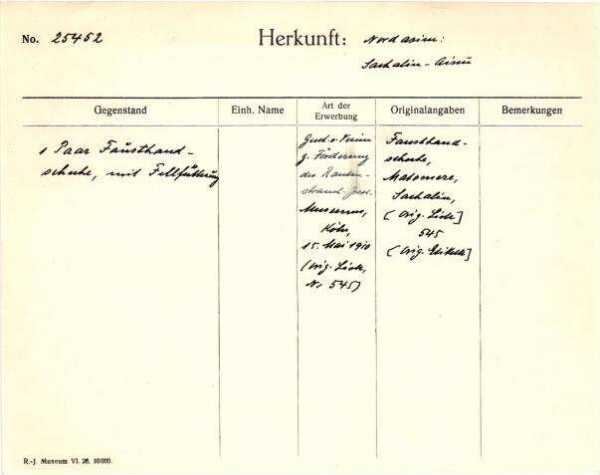 No. 25452
Herkunft: Nordasien:
Sachalin-Ainu
Gegenstand
Einh. Name
Art der
Erwerbung
Originalangaben
Bemerkungen
1 Paar Fausthand-
schuhe, mit Fellfütterung
Gesch. v. Verein
z. Förderung
des Rauten-
strauch-Joest-
Museums,
Köln,
15. Mai 1910
(Orig. Liste,
No 545)
Fausthand-
schuhe,
Sachalin,
(Orig. Liste]
545
(Orig. Etikett]
R.-J. Museum VI. 26. 10000.